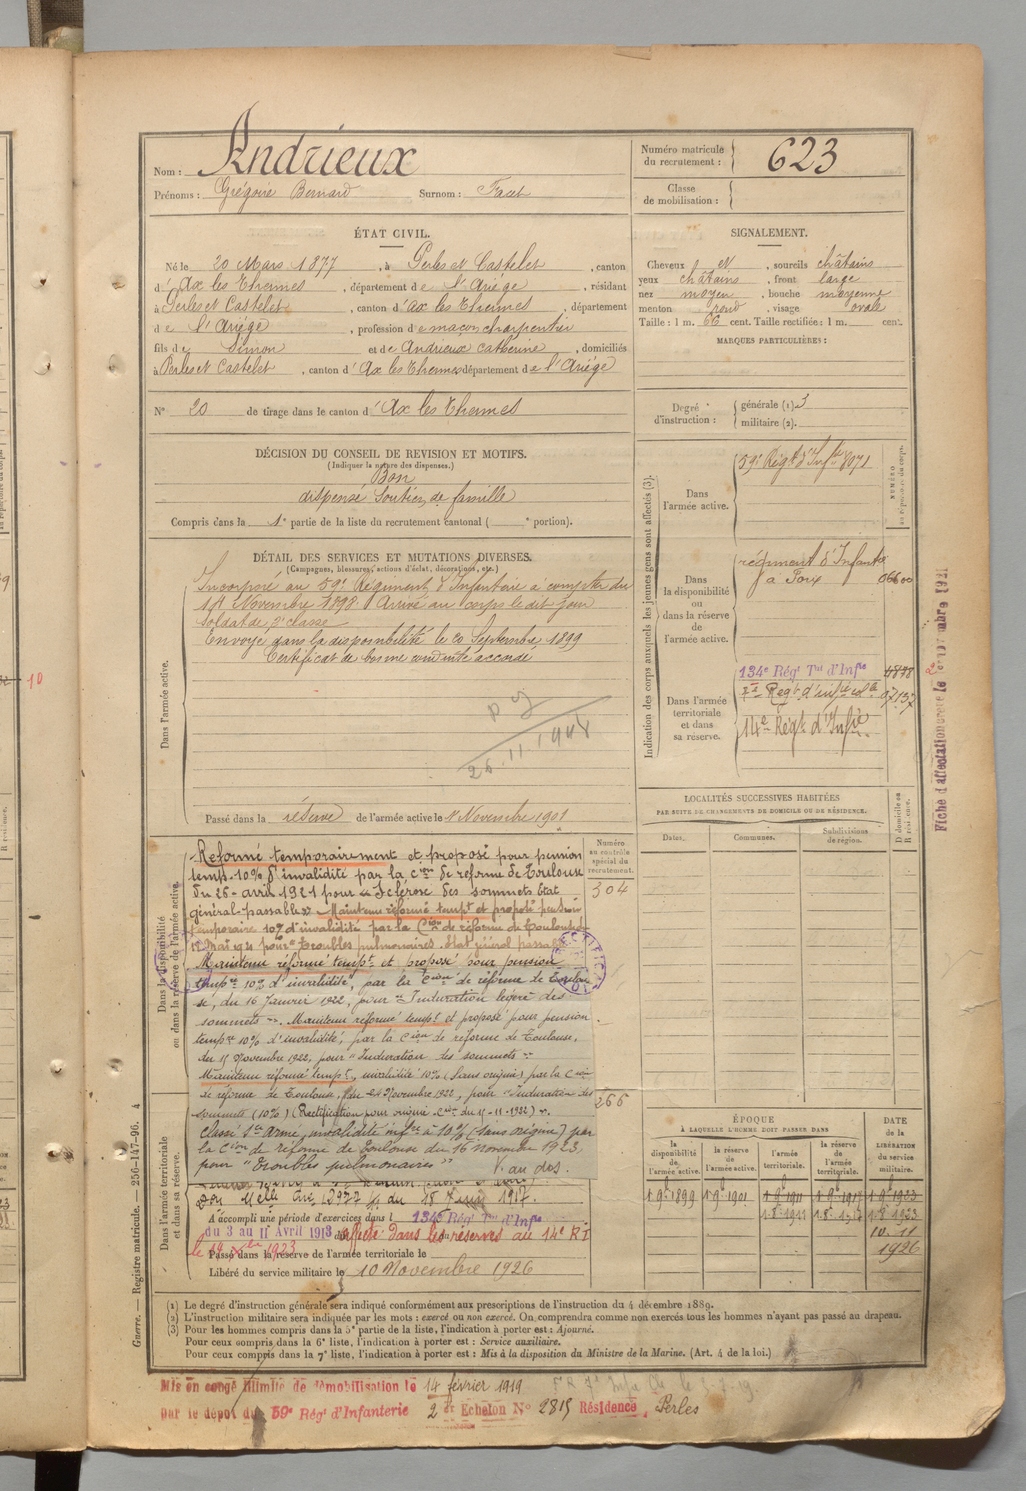 Nom : Andrieux
Prénoms : Grégoire Bernard Surnom : Facet
Numéro matricule du recrutement : 623
Classe de mobilisation :
ÉTAT CIVIL.
Né le 20 Mars 1877, à Perles et Castelet, canton
d'Ax les Thermes, département de l'Ariége, résidant
à Perles et Castelet, canton d'Ax les Thermes, département
de l'Ariége, profession de maçon charpentier
fils de Simon et de Andrieux Catherine, domiciliés
à Perles et Castelet, canton d'Ax les Thermes département de l'Ariége
N° 20 de tirage dans le canton d'Ax les Thermes
SIGNALEMENT.
Cheveux et, sourcils châtains
yeux châtains, front large
nez moyen, bouche moyenne
menton rond, visage ovale
Taille : 1 m. 66 cent. Taille rectifiée : 1 m. cent.
MARQUES PARTICULIÈRES :
Degré d'instruction : générale (1) 3
militaire (2).
DÉCISION DU CONSEIL DE REVISION ET MOTIFS.
(Indiquer la nature des dispenses.)
Bon
dispensé Soutien de famille
Compris dans la 1e partie de la liste du recrutement cantonal ( e portion).
DÉTAIL DES SERVICES ET MUTATIONS DIVERSES.
(Campagnes, blessures, actions d'éclat, décorations, etc.)
Dans l'armée active.
Incorporé au 59e Régiment d'Infanterie à compter du
14 Novembre 1898 Arrivé au corps le dit jour
Soldat de 2e classe
Envoyé dans la disponibilité le 20 Septembre 1899
Certificat de bonne conduite accordé
26.11.1948
Passé dans la réserve de l'armée active le 1er Novembre 1901
Indication des corps auxquels les jeunes gens sont affectés (3).
NUMÉRO au répertoire du corps.
Dans l'armée active.
59e Régt d'Infie 8071
Dans la disponibilité ou dans la réserve de l'armée active.
régiment d'Infantie
à Foix 06600
Dans l'armée territoriale et dans sa réserve.
134e Régt Tal d'Infie 4898
Regt d'infie cole 07137
14e Régt d'Infie
Fiche d'affectation créée le
LOCALITÉS SUCCESSIVES HABITÉES
PAR SUITE DE CHANGEMENTS DE DOMICILE OU DE RÉSIDENCE.
Dates. Communes. Subdivisions de région. D domicile ou R résidence.
Dans la disponibilité ou dans la réserve de l'armée active.
Numéro au contrôle spécial du recrutement.
304
Réformé temporairement et proposé pour pension
temp. 10% d'invalidité par la Cion de réforme de Toulouse
du 26 avril 1921 pour "Sclérose des sommets état
général passable". Maintenu réformé tempt et proposé pension
temporaire 10% d'invalidité par la Cion de réforme de Toulouse du
12 Mai 1921 pour "Troubles pulmonaires. état général passable
Maintenu réformé tempt et proposé pour pension
tempre 10% d'invalidité, par la Cion de réforme de Toulou
se, du 16 Janvier 1922, pour "Induration légère des
sommets". Maintenu réformé tempt et proposé pour pension
tempre 10% d'invalidité, par la Cion de réforme de Toulouse,
du 15 Novembre 1922, pour "Induration des sommets"
Maintenu réformé tempt, invalidité 10% (sans origine) par la Cion
de réforme de Toulouse, du 24 Novembre 1922, pour "Induration des
sommets (10%) (Rectification pour origine Cion du 15-11-1922)".
Classé Ser Armé, invalidité infre à 10% (sans origine) par
la Cion de réforme de Toulouse du 16 novembre 1923,
pour "Troubles pulmonaires" V. au dos.
RECTIFICATION
266
Dans l'armée territoriale et dans sa réserve.
du 18 Juin 1917.
A accompli une période d'exercices dans l 134e Régt Tal d'Infie
du 3 au 11 Avril 1913 affecté dans les réserves au 14e RI
Passé dans la réserve de l'armée territoriale le
Libéré du service militaire le 10 Novembre 1926
ÉPOQUE
À LAQUELLE L'HOMME DOIT PASSER DANS
la disponibilité de l'armée active. la réserve de l'armée active. l'armée territoriale. la réserve de l'armée territoriale.
DATE de la LIBÉRATION du service militaire.
1 9e 1899 1 9e 1901 1 9e 1911 1 9e 1917 1 9e 1923
1 8e 1911 1 8e 1917 1 8e 1923
10. 11
1926
(1) Le degré d'instruction générale sera indiqué conformément aux prescriptions de l'instruction du 4 décembre 1889.
(2) L'instruction militaire sera indiquée par les mots : exercé ou non exercé. On comprendra comme non exercés tous les hommes n'ayant pas passé au drapeau.
(3) Pour les hommes compris dans la 5e partie de la liste, l'indication à porter est : Ajourné.
Pour ceux compris dans la 6e liste, l'indication à porter est : Service auxiliaire.
Pour ceux compris dans la 7e liste, l'indication à porter est : Mis à la disposition du Ministre de la Marine. (Art. 4 de la loi.)
Guerre. — Registre matricule. — 256-147-96. 4
Mis en congé illimité de démobilisation le 14 février 1919
par le dépôt du 59e Régt d'Infanterie 2 er Echelon N° 2815 Résidence, Perles